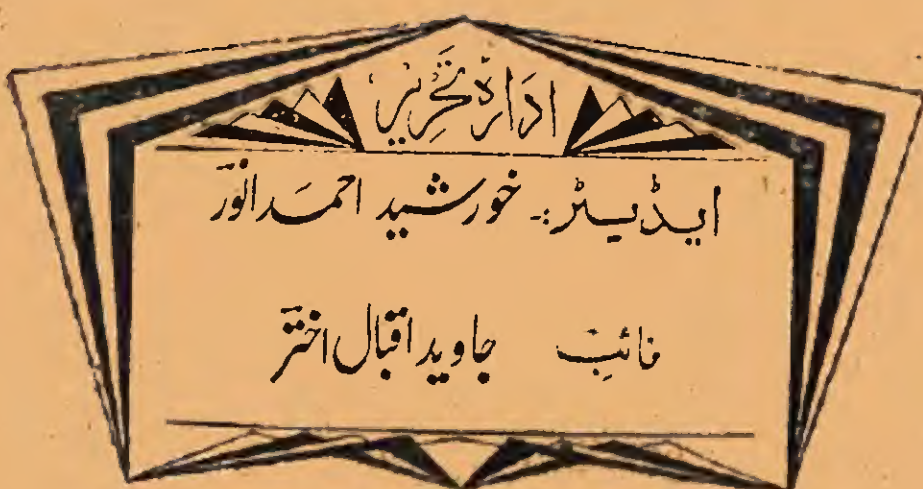 ادارہ تحریر
ایڈیٹر:۔ خورشید احمد انور
نائب جاوید اقبال اختر